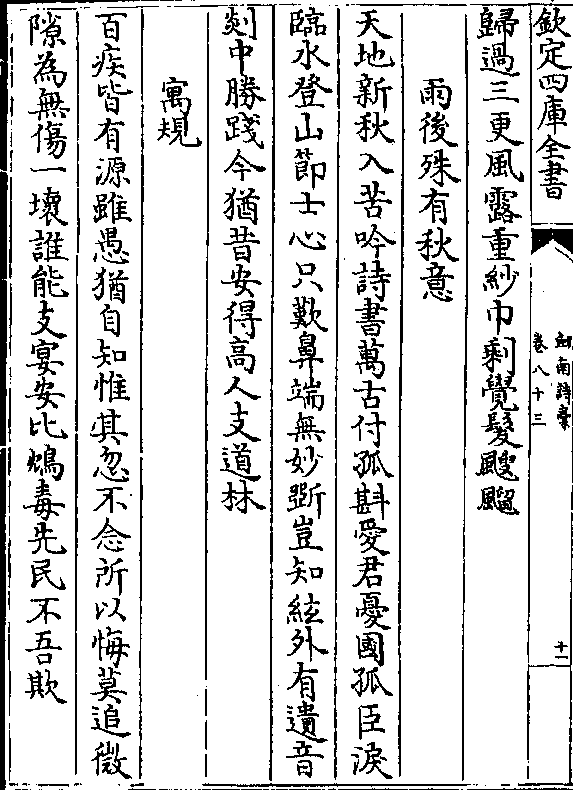 欽定四庫全書
劍南詩稾
卷八十三
十一
歸過三更風露重紗巾剩覺髮颼飀
雨後殊有秋意
天地新秋入苦吟詩書萬古付孤斟愛君憂國孤臣淚
臨水登山節士心只歎鼻端無妙斵豈知絃外有遺音
剡中勝踐今猶昔安得高人支道林
寓規
百疾皆有源雖愚猶自知惟其忽不念所以悔莫追微
隙為無傷一壞誰能支宴安比鴆毒先民不吾欺